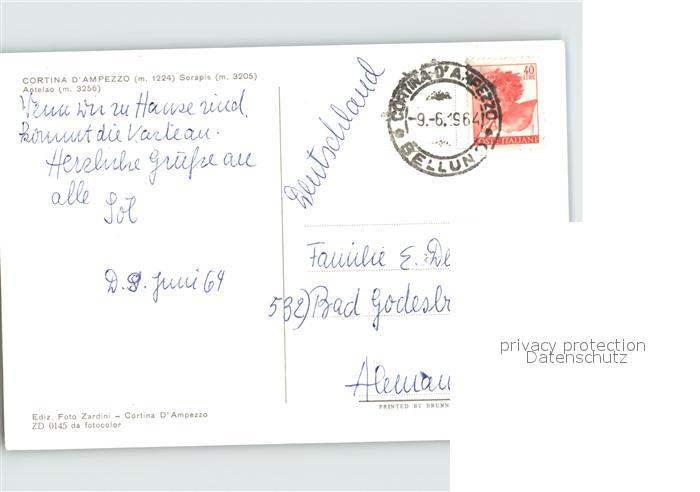 CORTINA D'AMPEZZO (m. 1224) Sorapis (m. 3205)
Antelao (m. 3256)
Wenn wir zu Hause sind,
kommt die Karte an.
Herzliche Grüße an
alle
D. 9. Juni 64
Deutschland
CORTINA D'AMPEZZO
-9.-6.1964
BELLUNO
40
LIRE
POSTE ITALIANE
Familie E. De
532) Bad Godesb
Aleman
PRINTED BY BRUNN
Ediz. Foto Zardini – Cortina D'Ampezzo
ZD 0145 da fotocolor
privacy protection
Datenschutz